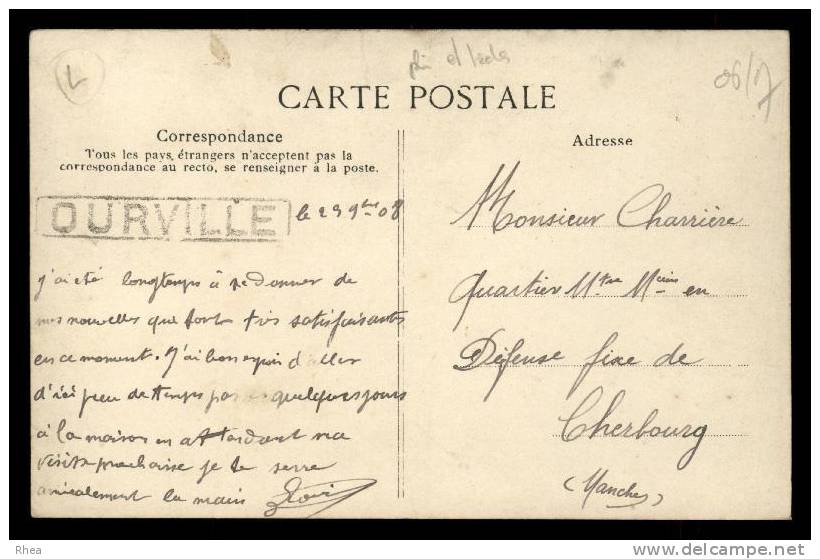 L
06/17
CARTE POSTALE
Correspondance
Tous les pays étrangers n'acceptent pas la
correspondance au recto, se renseigner à la poste.
OURVILLE
le 23 9bre 08
J'ai été longtemps à te donner de
mes nouvelles que sont très satisfaisantes
en ce moment. J'ai bon espoir d'aller
d'ici peu de temps quelques jours
à la maison en attendant ma
visite prochaine je te serre
amicalement la main
Adresse
Monsieur Charrière
Quartier Mtre Mcien en
Défense fixe de
Cherbourg
(Manche)
Rhea
http://www.delcampe.net